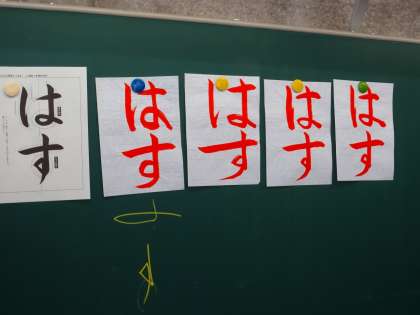 はす
はす
はす
はす
はす